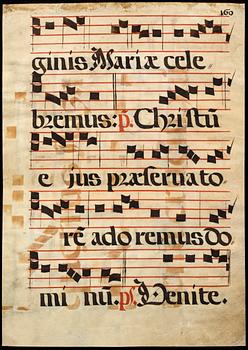 160
ginis Mariæ cele
bremus: p̃. Christū
e jus præservato
rē ado remus Do
mi nū. ps. Venite.